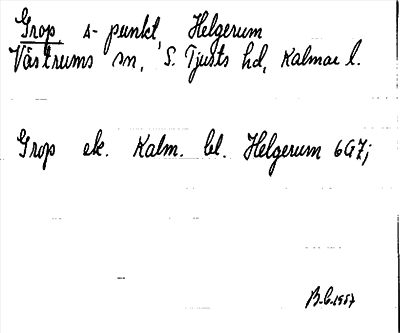 Grop, s-punkt, Helgerum
Västrums sn, S. Tjusts hd, Kalmar l.
Grop ek. Kalm. bl. Helgerum 6G7j
B.C. 1957